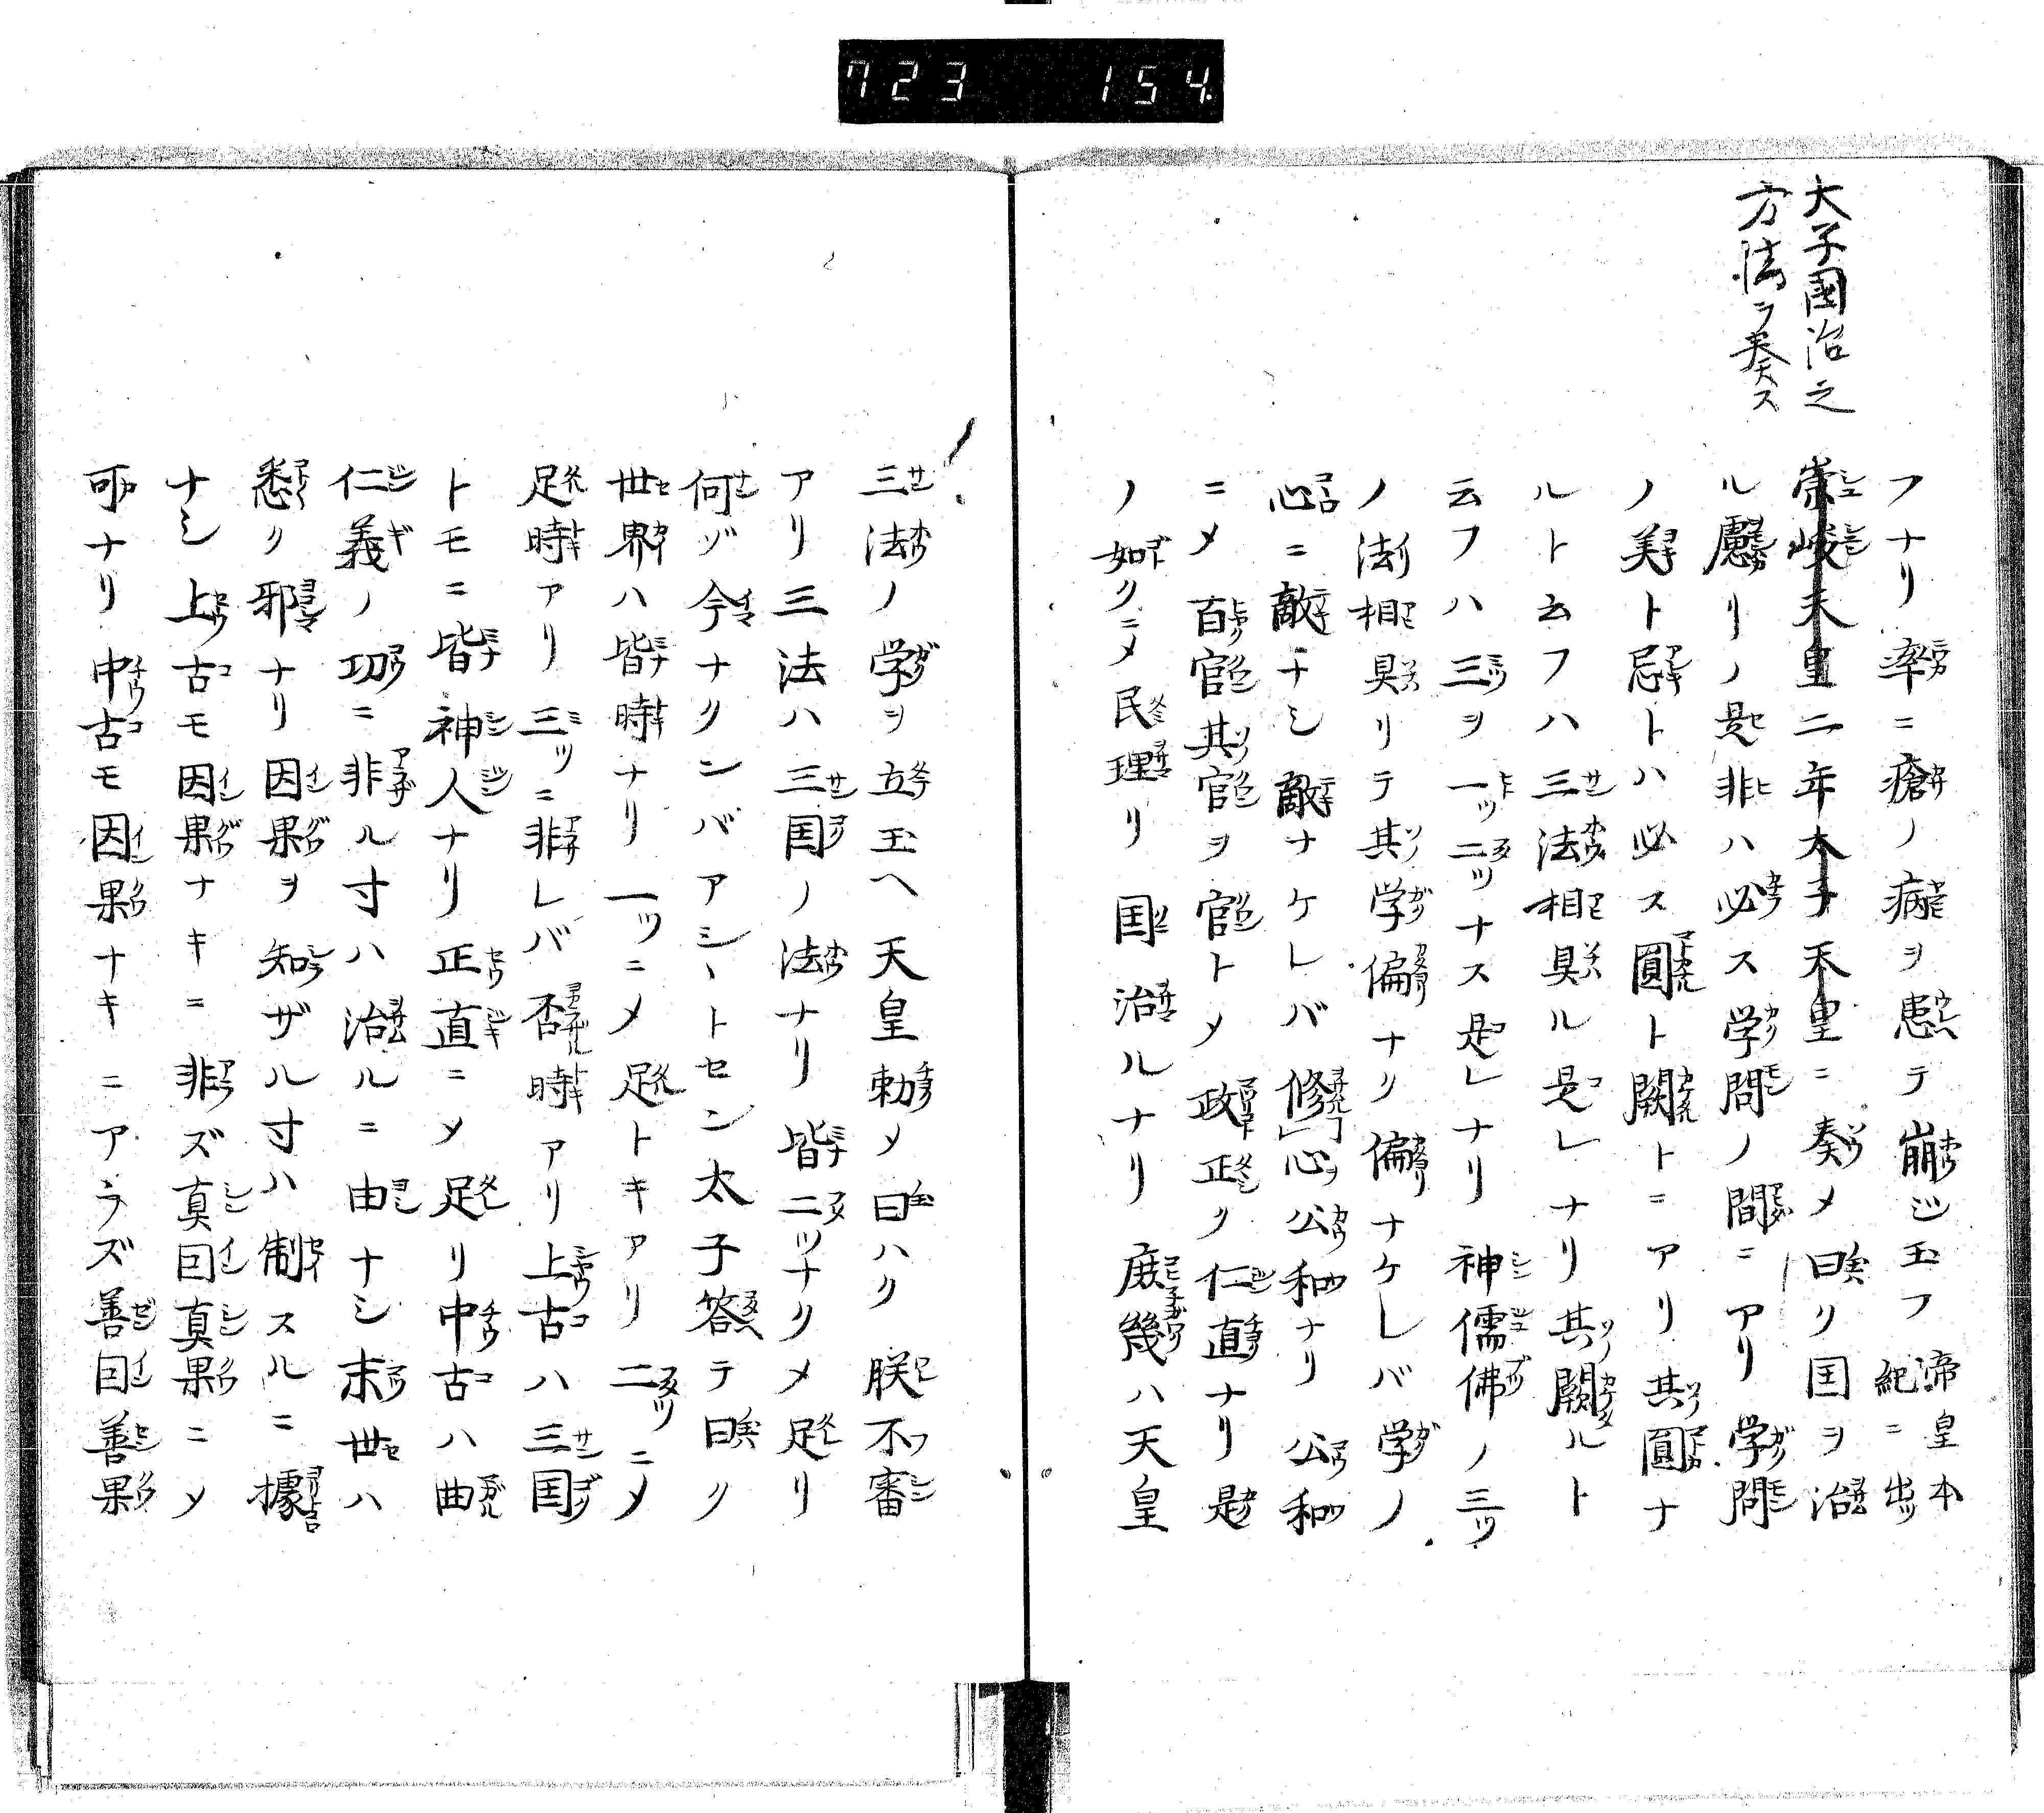 723 154
大子國治之
方法ヲ奏ス
フナリ率ニ瘡ノ病ヲ患テ崩シ玉フ 帝皇本
紀ニ出ツ
崇峻天皇二年太子天皇ニ奏メ曰ク囯ヲ治
ル慮リノ是非ハ必ス学問ノ間ニアリ学問
ノ美ト忌トハ必ス圓ト闕トニアリ其圓ナ
ルト云フハ三法相具ル是レナリ其闕ルト
云フハ三ヲ一ッ二ッナス是レナリ神儒佛ノ三ッ
ノ法相具リテ其学偏ナク偏ナケレバ学ノ
心ニ敵ナシ敵ナケレバ修心公和ナリ公和
ニメ百官其官ヲ官トメ政正ク仁直ナリ是
ノ如クニメ民理リ囯治ルナリ庶幾ハ天皇
三法ノ学ヲ立玉ヘ天皇勅メ曰ハク朕不審
アリ三法ハ三囯ノ法ナリ皆二ッナクメ足リ
何ゾ今ナクンバアシヽトセン太子答テ曰ク
世界ハ皆時ナリ一ッニメ足トキアリ二ッニメ
足時アリ三ッニ非レバ否時アリ上古ハ三囯
トモニ皆神人ナリ正直ニメ足リ中古ハ曲
仁義ノ功ニ非ル寸ハ治ルニ由ナシ末世ハ
悉ク邪ナリ因果ヲ知ザル寸ハ制スルニ據
ナシ上古モ因果ナキニ非ズ真因真果ニメ
可ナリ中古モ因果ナキニアラズ善因善果